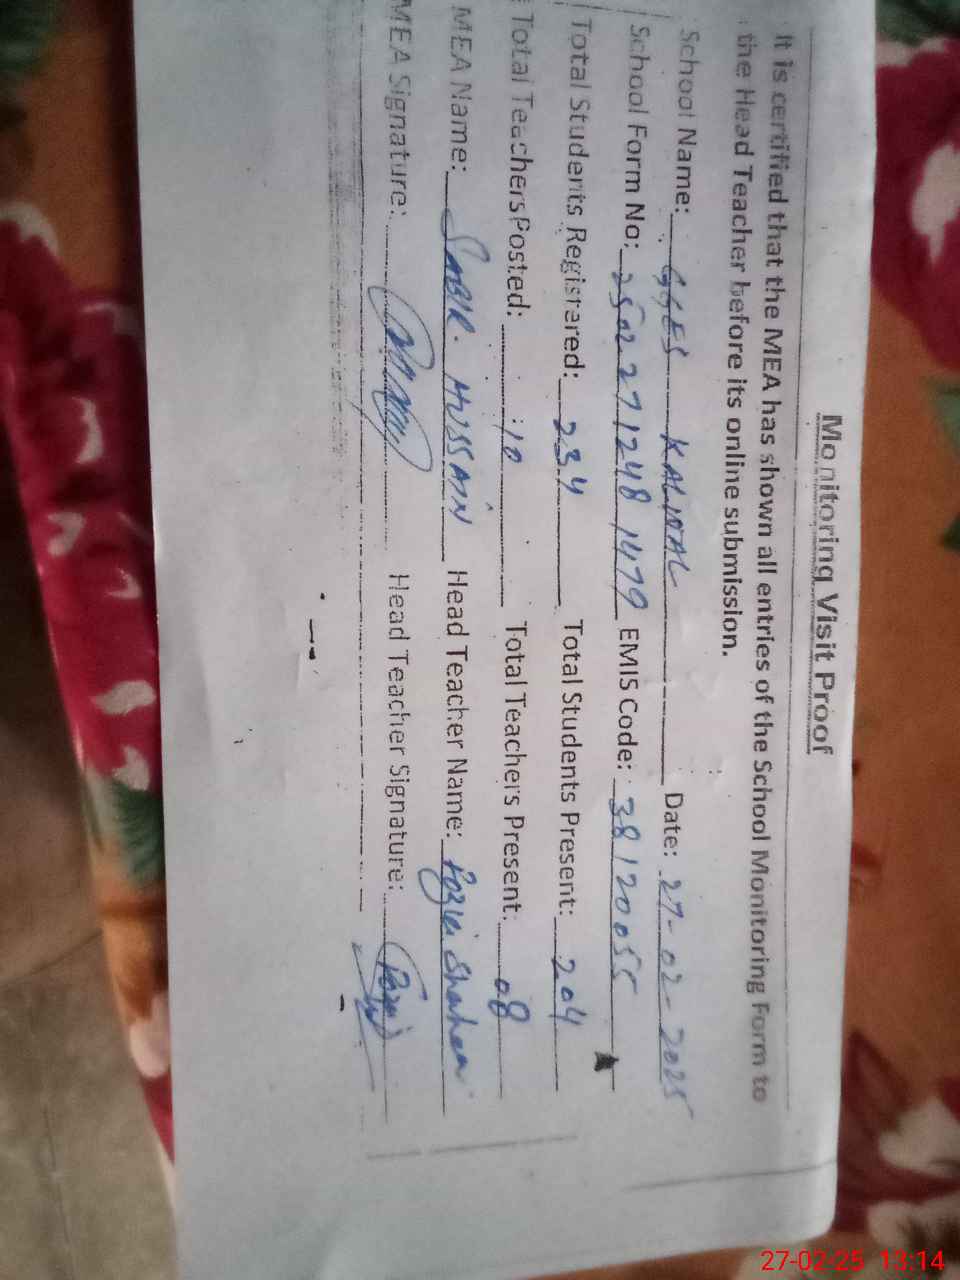 Monitoring Visit Proof
It is certified that the MEA has shown all entries of the School Monitoring Form to
the Head Teacher before its online submission.
School Name: GGES KALWAL Date: 27-02-2025
School Form No: 2502271248 1479 EMIS Code: 38120055
Total Students Registered: 234 Total Students Present: 204
Total Teachers Posted: 10 Total Teachers Present: 08
MEA Name: SABIR HUSSAIN Head Teacher Name: Fozia Shaheen
MEA Signature: Head Teacher Signature:
27-02-25 13:14